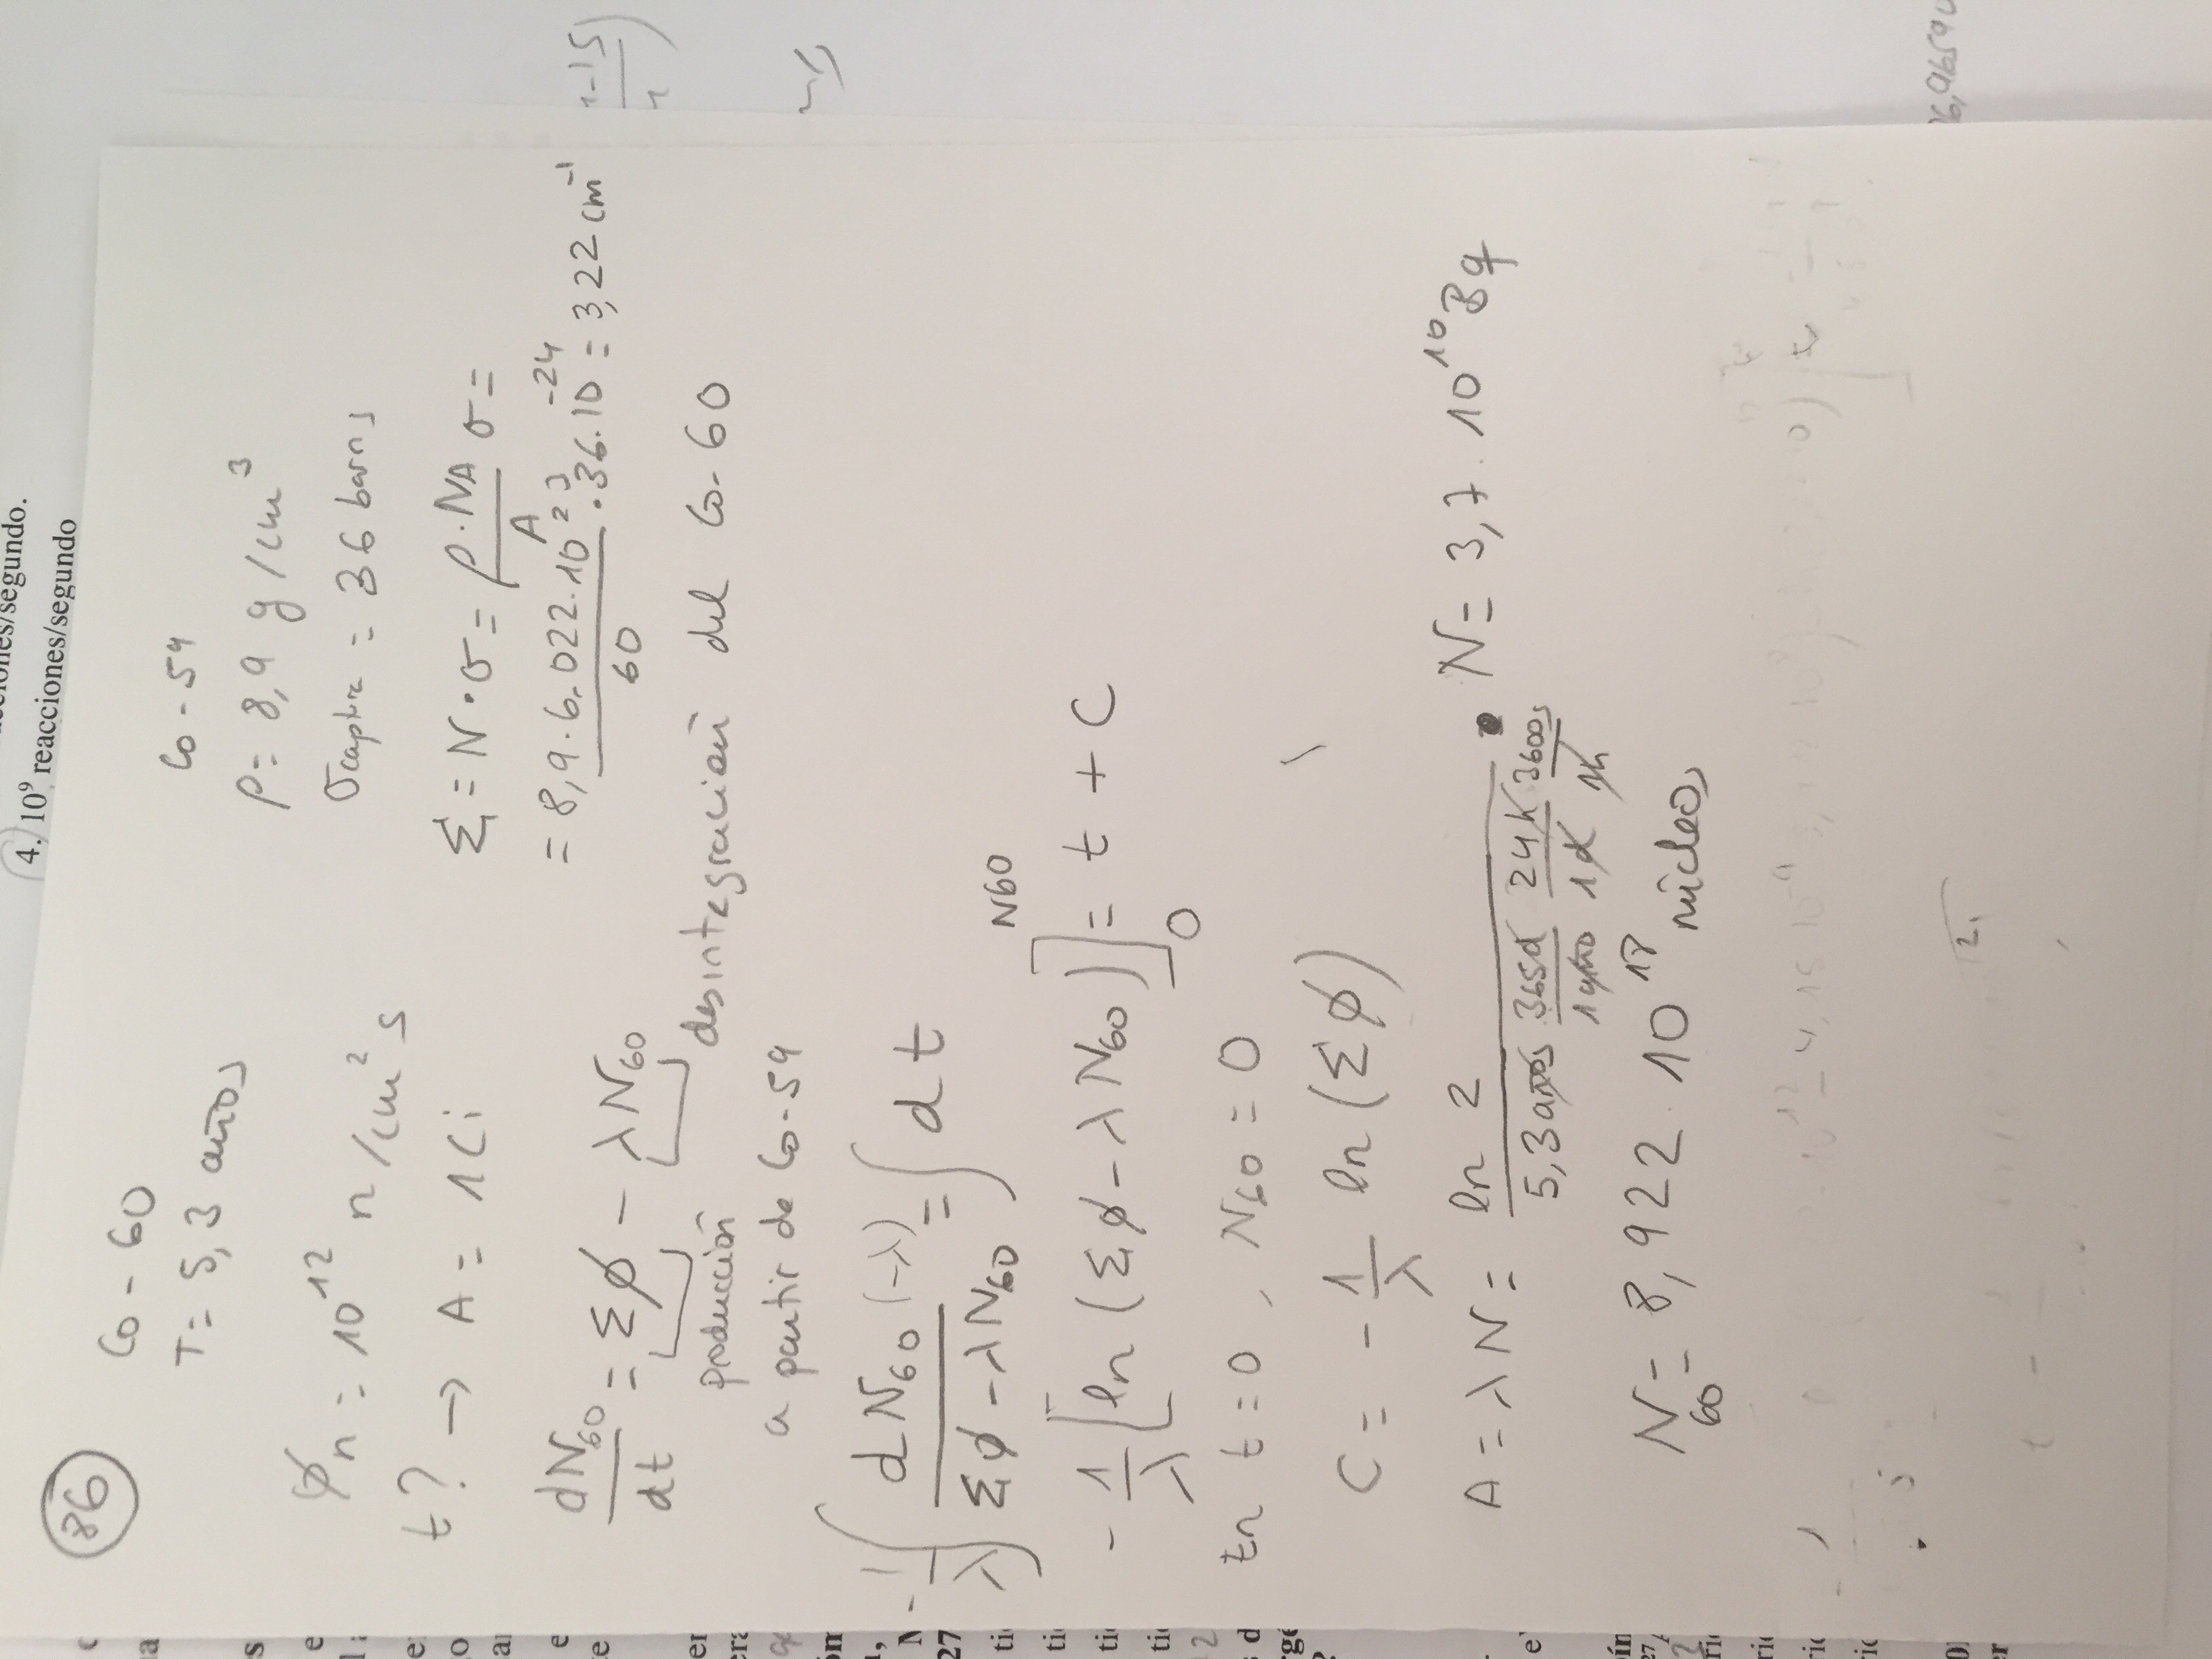 ciones/segundo.
4. 10⁹ reacciones/segundo
86
Co - 60
T = 5,3 años
Co - 59
ρ = 8,9 g/cm³
ϕn = 10¹² n/cm² s
σcaptura = 36 barns
t? → A = 1Ci
Σ = N · σ = ρ·NA/A σ =
= 8,9 · 6,022 · 10²³/60 · 36 · 10⁻²⁴ = 3,22 cm⁻¹
dN60/dt = Σϕ - λN60
producción
desintegración del Co-60
a partir de Co-59
-1/λ ∫ dN60 (-λ)/(Σϕ - λN60) = ∫ dt
-1/λ [ln (Σϕ - λN60)]₀^N60 = t + C
En t = 0, N60 = 0
C = -1/λ ln (Σϕ)
A = λN = ln 2/(5,3 años 365d/1año 24h/1d 3600s/1h) · N = 3,7 · 10¹⁰ Bq
N60 = 8,922 · 10¹⁸ núcleos